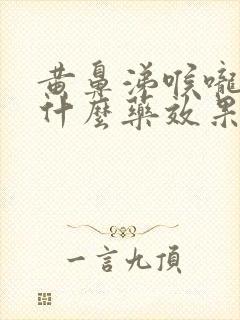 黄鼻涕喉嚨
什麼藥效果
一言九頂